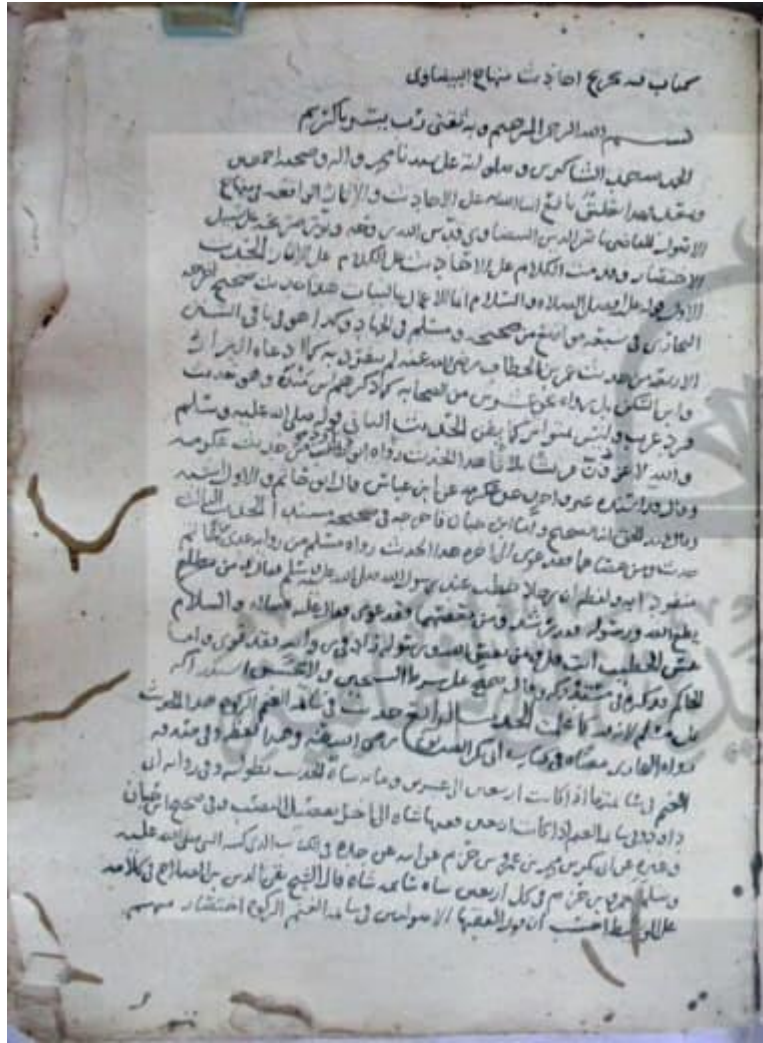 كتاب فيه تخريج احاديث منهاج البيضاوي
بسم الله الرحمن الرحيم وبه ثقتي رب يسر يا كريم
الحمد لله حمد الشاكرين وصلواته على سيدنا محمد واله وصحبه اجمعين
وبعد فهذا تعليق نافع ان شاء الله على الاحاديث والاثار الواقعة في منهاج
الاصول للقاضي ناصر الدين البيضاوي قدس الله روحه على سبيل
الاختصار وقدمت الكلام على الاحاديث على الكلام على الاثار الحديث
الاول قوله عليه افضل الصلاة والسلام انما الاعمال بالنيات هذا حديث صحيح اخرجه
البخاري في سبعة مواضع من صحيحه ومسلم في الجهاد وكذا هو في باقي السنن
الاربعة من حديث عمر بن الخطاب رضي الله عنه لم ينفرد به كما ادعاه البزار
وابن السكن بل رواه نحو عشرين من الصحابه كما ذكرهم ابن منده وهو حديث
فرد غريب وليس بمتواتر كما يظن الحديث الثاني قوله صلى الله عليه وسلم
والله لاغزون قريشا ثلاثا هذا الحديث رواه من حديث عكرمة
وقال وقد اسنده غير واحد عن عكرمة عن ابن عباس قال ابن ابي حاتم والاول اشبه
وقال ابن القطان انه الصحيح واما ابن حبان فاخرجه في صحيحه مسندا الحديث الثالث
حديث ومن عصاهما فقد غوى الى اخره هذا الحديث رواه مسلم من رواية عدي بن حاتم
منفردا به ولفظه ان رجلا خطب عند رسول الله صلى الله عليه وسلم فقال من يطع
يطع الله ورسوله فقد رشد ومن يعصهما فقد غوى فقال عليه الصلاة والسلام
بئس الخطيب انت قل ومن يعص الله ورسوله زاد في رواية فقد غوى واما
الحاكم فذكره في مستدركه وقال صحيح على شرط الشيخين استدراكه
على مسلم لا يرد كما علمت الحديث الرابع حديث في سائمة الغنم الزكاة هذا الحديث
رواه البخاري معناه في كتاب ابي بكر الصديق رضي الله عنه وهذا لفظه وفي صدقة
الغنم في سائمتها اذا كانت اربعين الى عشرين ومائة شاة الحديث بطوله وفي رواية ابي
داود وفي سائمة الغنم اذا كانت اربعين ففيها شاة الى وفي صحيح ابن حبان
وغيره عن ابي بكر بن محمد بن عمرو بن حزم عن ابيه عن جده في الكتاب الذي كتبه النبي صلى الله عليه
وسلم لعمرو بن حزم في كل اربعين شاة سائمة شاة قال الشيخ تقي الدين بن الصلاح في كلامه
على الوسيط احسب ان قول الفقهاء الاصوليين في سائمة الغنم الزكاة اختصار منهم